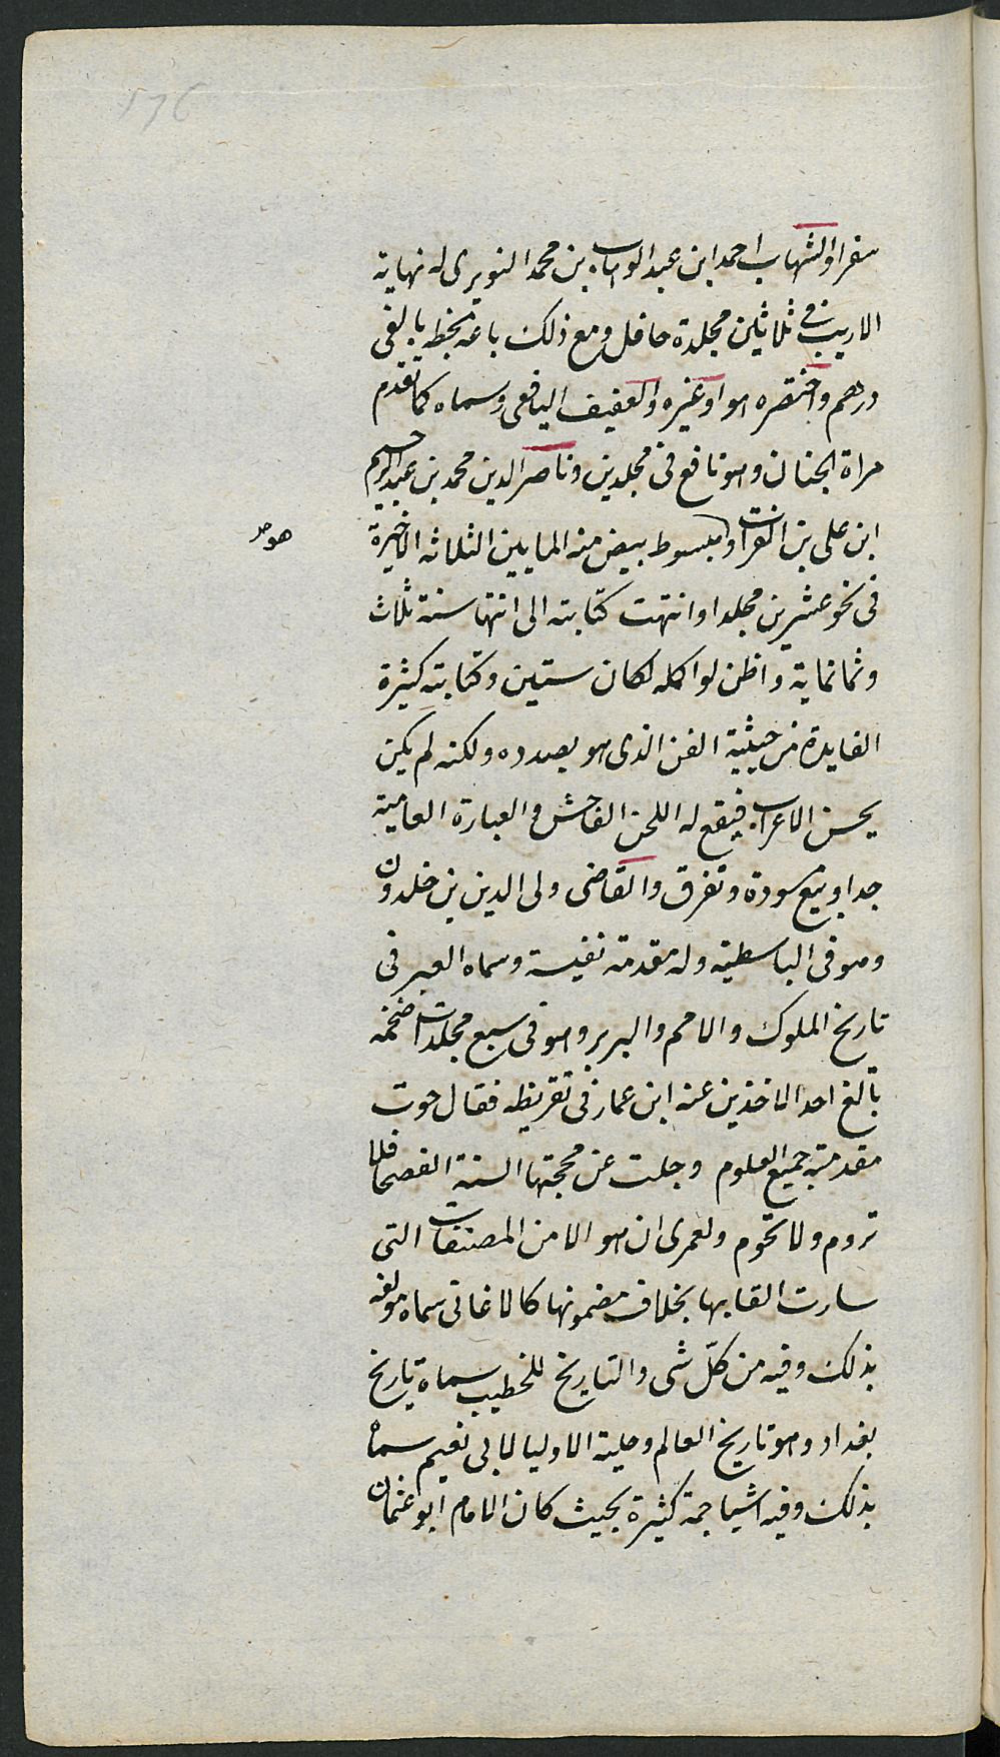 136
سفرا والشهاب احمد ابن عبد الوهاب بن محمد النويرى له نهاية
الاريب فى ثلاثين مجلدة حافل ومع ذلك باعه بخطه بالفى
درهم واختصره هو او غيره والعفيف اليافعى وسماه كما تقدم
مراة الجنان وهو نافع فى مجلدين وناصر الدين محمد بن عبد الرحيم
ابن على بن الفرات وا مبسوط بيض منه المايين الثلاثه الاخيرة
هو صح
فى نحو عشرين مجلدا وانتهت كتابته الى انتها سنة ثلاث
وثمانماية واظن لو اكمله لكان ستين وكتابته كثيرة
الفايدة من حيثية الفن الذى هو بصدده ولكنه لم يكن
يحسن الاعراب فيقع له اللحن الفاحش والعبارة العامية
جدا وبيع مسودة وتفرق والقاضى ولى الدين بن خلدون
وهو فى الباسطيه وله مقدمة نفيسة وسماه العبر فى
تاريخ الملوك والامم والبربر وهو فى سبع مجلدات ضخمه
بالغ احد الاخذين عنه ابن عمار فى تقريظه فقال حوت
مقدمته جميع العلوم وجلت عن محجتها السنة الفصحا فلا
تروم ولا تحوم ولعمرى ان هو الا من المصنفات التى
سارت القابها بخلاف مضمونها كالاغانى سماه مولفه
بذلك وفيه من كلّ شى والتاريخ للخطيب سماه تاريخ
بغداد وهو تاريخ العالم وحلية الاوليا لابى نعيم سماه
بذلك وفيه اشيا جمة كثيرة بحيث كان الامام ابو عثمان